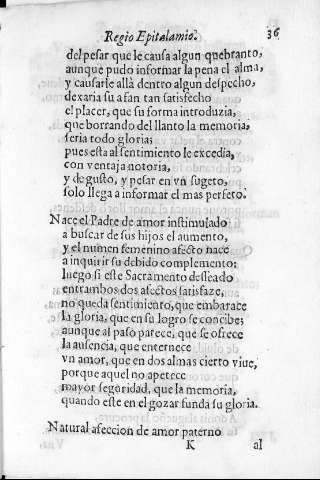 Regio Epitalamio. 36
del pesar que le causa algun quebranto,
aunque pudo informar la pena el alma,
y causarle allà dentro algun despecho,
dexaria su afan tan satisfecho
el placer, que su forma introduzia,
que borrando del llanto la memoria,
seria todo gloria;
pues esta al sentimiento le excedia,
con ventaja notoria,
y de gusto, y pesar en vn sugeto,
solo llega a informar el mas perfeto.
Nace el Padre de amor instimulado
a buscar de sus hijos el aumento,
y el numen femenino afecto nace
a inquirir su debido complemento:
luego si este Sacramento desseado
entrambos dos afectos satisfaze,
no queda sentimiento, que embarace
la gloria, que en su logro se concibe;
aunque al paso parece, que se ofrece
la ausencia, que enternece
vn amor, que en dos almas cierto viue,
porque aquel no apetece
mayor seguridad, que la memoria,
quando este en el gozar funda su gloria.
Natural afeccion de amor paterno
K al